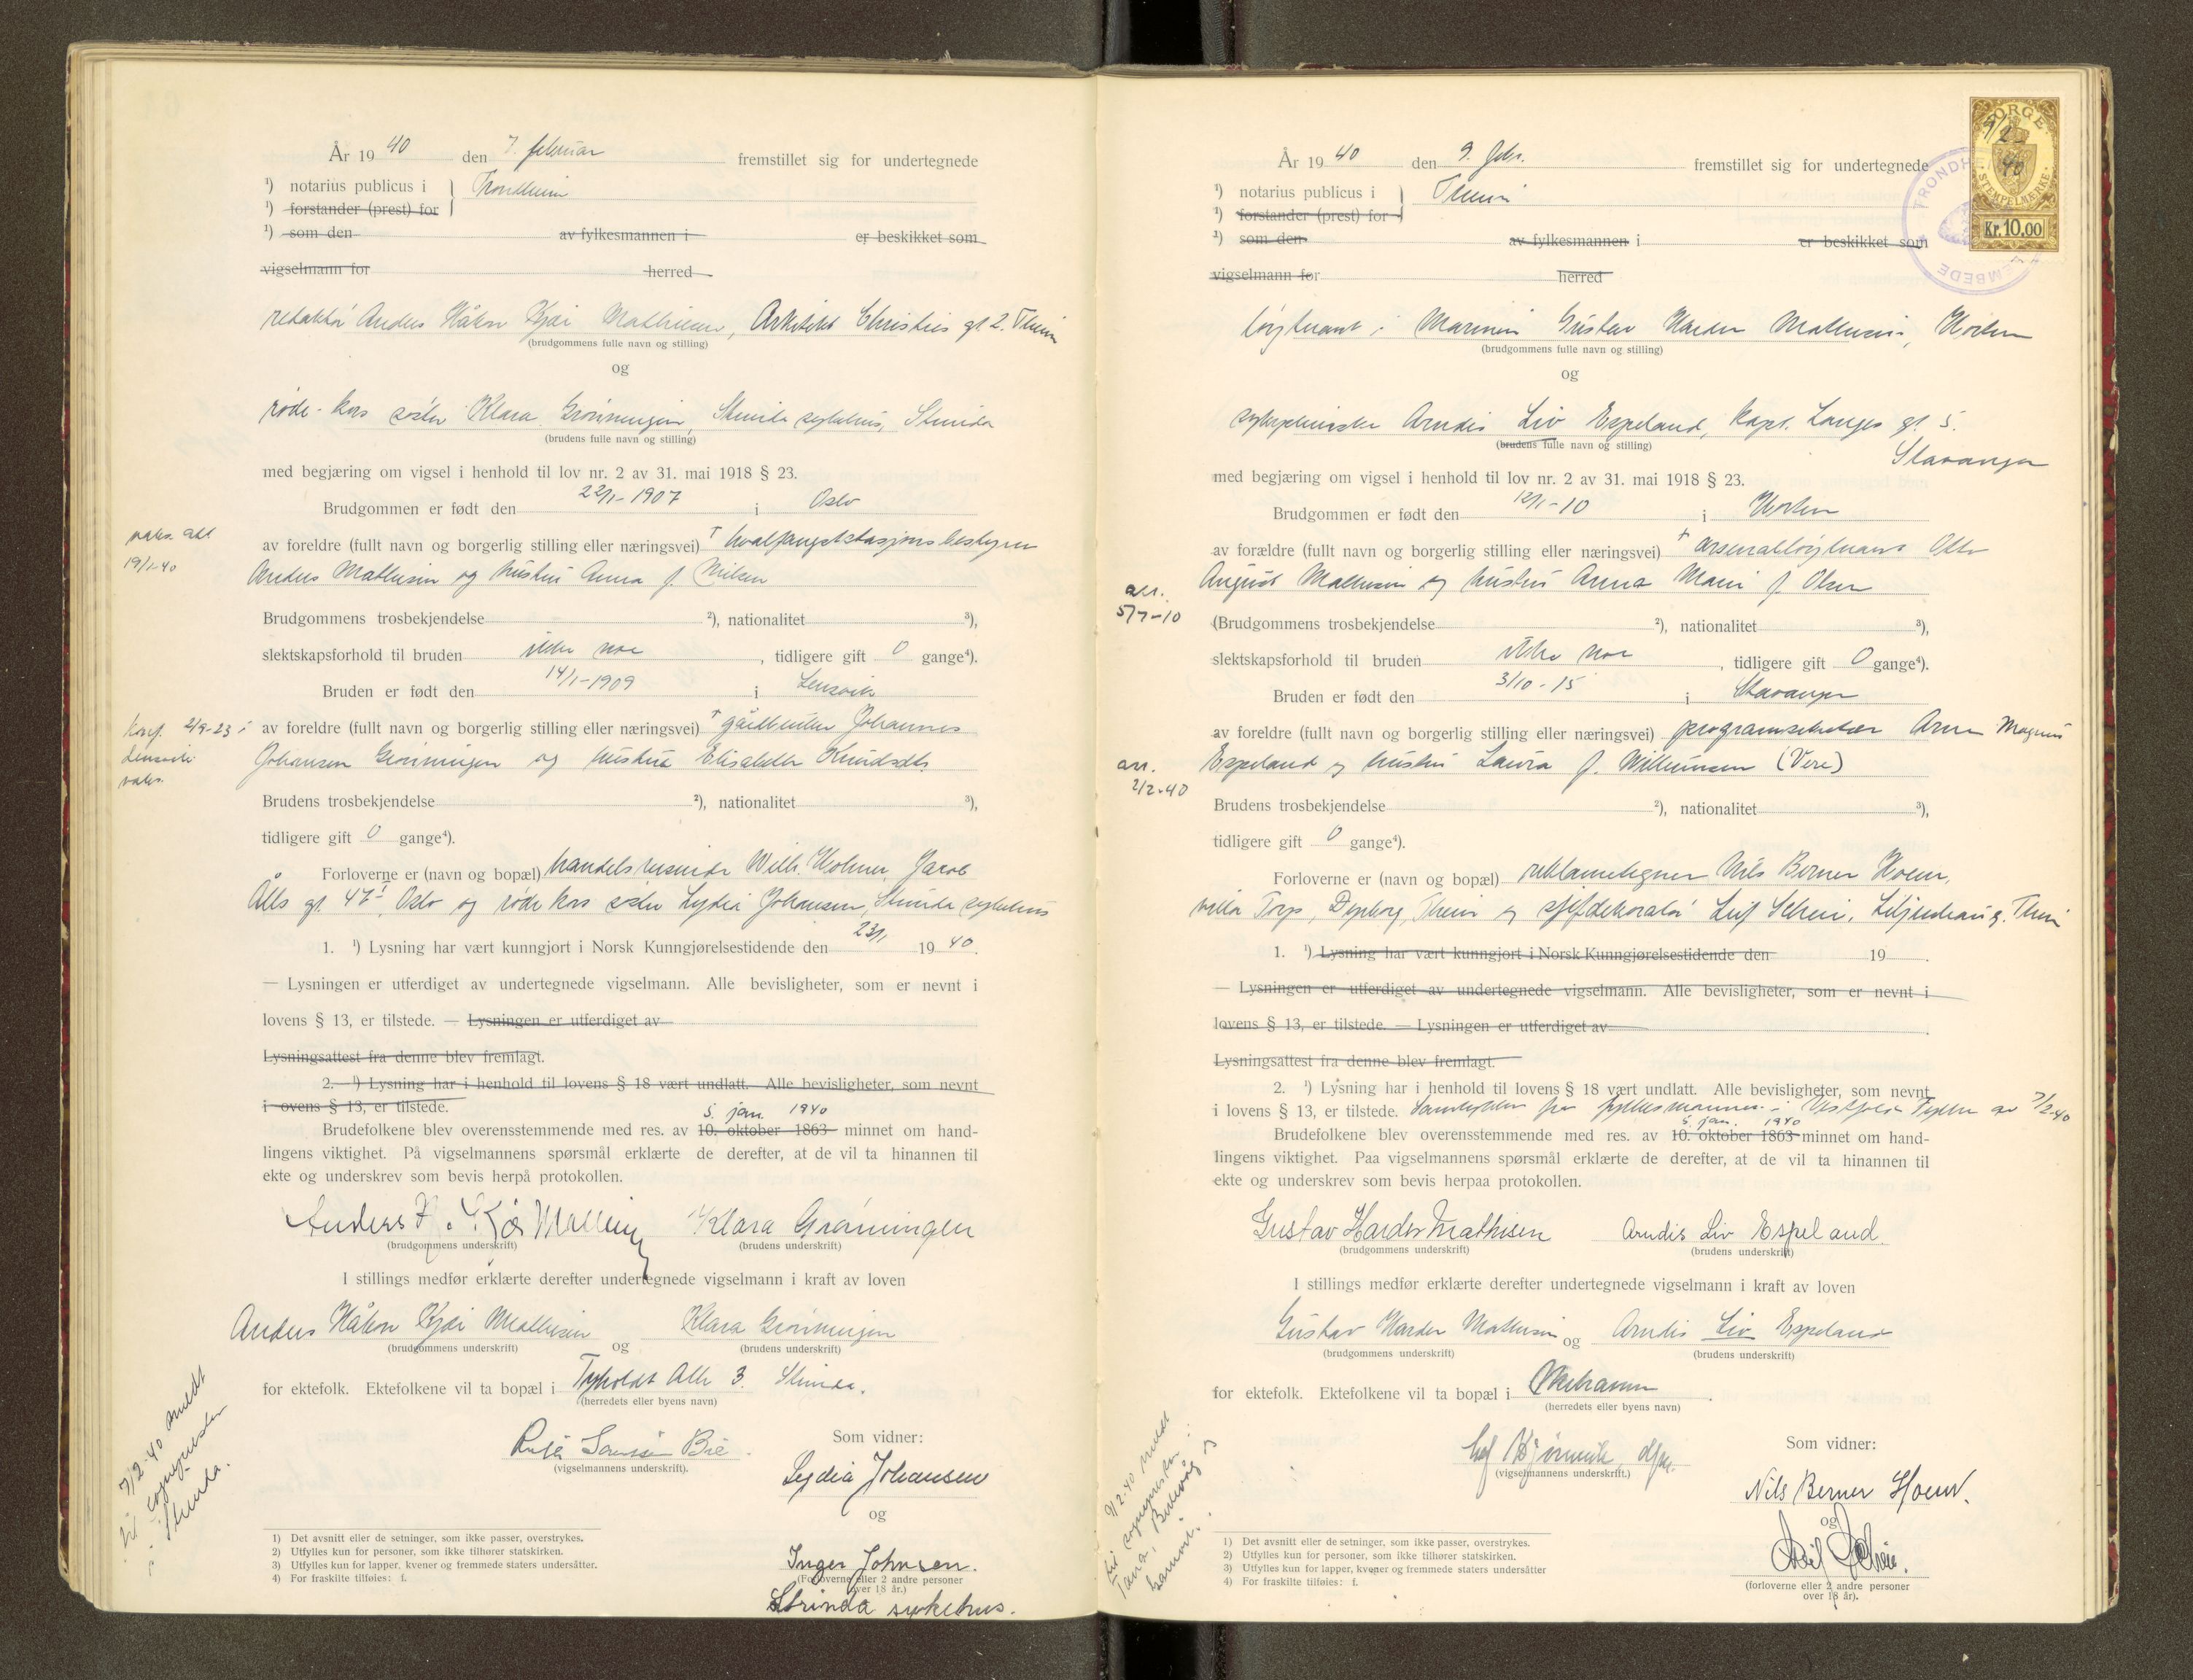 År 1940 den 7. februar fremstillet sig for undertegnede
¹) notarius publicus i } Trondheim
¹) forstander (prest) for
¹) som den av fylkesmannen i er beskikket som
vigselmann for herred
redaktør Anders Håkon Kjær Mathisen, Arkitekt Christies gt 2. Thrim
(brudgommens fulle navn og stilling)
og
røde-kors søster Klara Grønningen, Strinda sykehus, Strinda
(brudens fulle navn og stilling)
med begjæring om vigsel i henhold til lov nr. 2 av 31. mai 1918 § 23.
Brudgommen er født den 22/1-1907 i Oslo
vaks. att
19/1-40
av foreldre (fullt navn og borgerlig stilling eller næringsvei) † hvalfangststasjonsbestyrer
Anders Mathisen og hustru Anna f. Nilsen
Brudgommens trosbekjendelse ²), nationalitet ³),
slektskapsforhold til bruden ikke noe, tidligere gift 0 gange⁴).
Bruden er født den 14/1-1909 i Lensvik
konf. 2/9-23 i
Lensvik
vaks.
av foreldre (fullt navn og borgerlig stilling eller næringsvei) † gårdbruker Johannes
Johansen Grønningen og hustru Elisabeth Knudsdtr.
Brudens trosbekjendelse ²), nationalitet ³),
tidligere gift 0 gange⁴).
Forloverne er (navn og bopæl) handelsreisende Wilh. Holmer, Jacob
Ålls gt. 47ᴵ, Oslo og røde kors søster Lydia Johansen, Strinda sykehus
1. ¹) Lysning har vært kunngjort i Norsk Kunngjørelsestidende den 23/1 1940.
— Lysningen er utferdiget av undertegnede vigselmann. Alle bevisligheter, som er nevnt i
lovens § 13, er tilstede. — Lysningen er utferdiget av
Lysningsattest fra denne blev fremlagt.
2. ¹) Lysning har i henhold til lovens § 18 vært undlatt. Alle bevisligheter, som nevnt
i ovens § 13, er tilstede.
5. jan. 1940
Brudefolkene blev overensstemmende med res. av 10. oktober 1863 minnet om hand-
lingens viktighet. På vigselmannens spørsmål erklærte de derefter, at de vil ta hinannen til
ekte og underskrev som bevis herpå protokollen.
Anders H. Kjær Mathisen Klara Grønningen
(brudgommens underskrift) (brudens underskrift)
I stillings medfør erklærte derefter undertegnede vigselmann i kraft av loven
Anders Håkon Kjær Mathisen og Klara Grønningen
(brudgommens underskrift) (brudens underskrift)
for ektefolk. Ektefolkene vil ta bopæl i Tyholdt Alle 3. Strinda.
(herredets eller byens navn)
7/2-40 meldt
til sognepresten
i Strinda.
(vigselmannens underskrift).
Som vidner:
Lydia Johansen
og
Inger Johnsen.
(Forloverne eller 2 andre personer
over 18 år.)
Strinda sykehus.
1) Det avsnitt eller de setninger, som ikke passer, overstrykes.
2) Utfylles kun for personer, som ikke tilhører statskirken.
3) Utfylles kun for lapper, kvener og fremmede staters undersåtter.
4) For fraskilte tilføies: f.
NORGE
9/2 40
STEMPELMERKE
Kr. 10.00
TRONDHEIM
EMBEDE
År 1940 den 9. febr. fremstillet sig for undertegnede
¹) notarius publicus i } Thrim
¹) forstander (prest) for
¹) som den av fylkesmannen i er beskikket som
vigselmann for herred
løytnant i Marinen Gustav Harder Mathisen, Horten
(brudgommens fulle navn og stilling)
og
sykepleierske Arndis Liv Espeland, Kapt. Langes gt. 5.
(brudens fulle navn og stilling)
Stavanger
med begjæring om vigsel i henhold til lov nr. 2 av 31. mai 1918 § 23.
Brudgommen er født den 12/1-10 i Horten
av forældre (fullt navn og borgerlig stilling eller næringsvei) † arsenalløytnant Otto
August Mathisen og hustru Anna Marie f. Olsen
att.
5/7-10
(Brudgommens trosbekjendelse ²), nationalitet ³),
slektskapsforhold til bruden ikke noe, tidligere gift 0 gange⁴).
Bruden er født den 3/10-15 i Stavanger
av foreldre (fullt navn og borgerlig stilling eller næringsvei) programsekretær Arne Magnus
Espeland og hustru Laura f. Wilhelmsen (Vere)
att.
2/2-40
Brudens trosbekjendelse ²), nationalitet ³),
tidligere gift 0 gange⁴).
Forloverne er (navn og bopæl) reklametegner Nils Berner Hoem,
villa Torp, Dyrborg, Thrim og sjefdekoratør Leif Schei, Thrim
1. ¹) Lysning har vært kunngjort i Norsk Kunngjørelsestidende den 19
— Lysningen er utferdiget av undertegnede vigselmann. Alle bevisligheter, som er nevnt i
lovens § 13, er tilstede. — Lysningen er utferdiget av
Lysningsattest fra denne blev fremlagt.
2. ¹) Lysning har i henhold til lovens § 18 vært undlatt. Alle bevisligheter, som nevnt
i lovens § 13, er tilstede. Samtykke fra fylkesmannen i Vestfold Fylke av 7/2-40
5. jan. 1940
Brudefolkene blev overensstemmende med res. av 10. oktober 1863 minnet om hand-
lingens viktighet. Paa vigselmannens spørsmål erklærte de derefter, at de vil ta hinannen til
ekte og underskrev som bevis herpaa protokollen.
Gustav Harder Mathisen Arndis Liv Espeland
(brudgommens underskrift) (brudens underskrift)
I stillings medfør erklærte derefter undertegnede vigselmann i kraft av loven
Gustav Harder Mathisen og Arndis Liv Espeland
(brudgommens underskrift) (brudens underskrift)
for ektefolk. Ektefolkene vil ta bopæl i
(herredets eller byens navn)
9/2-40 meldt
til sogneprestene i
Tana,
(vigselmannens underskrift.)
Som vidner:
Nils Berner Hoem.
og
Leif Schei.
(forloverne eller 2 andre personer
over 18 år).
1) Det avsnitt eller de setninger, som ikke passer, overstrykes.
2) Utfylles kun for personer, som ikke tilhører statskirken.
3) Utfylles kun for lapper, kvener og fremmede staters undersåtter
4) For fraskilte tilføies: f.